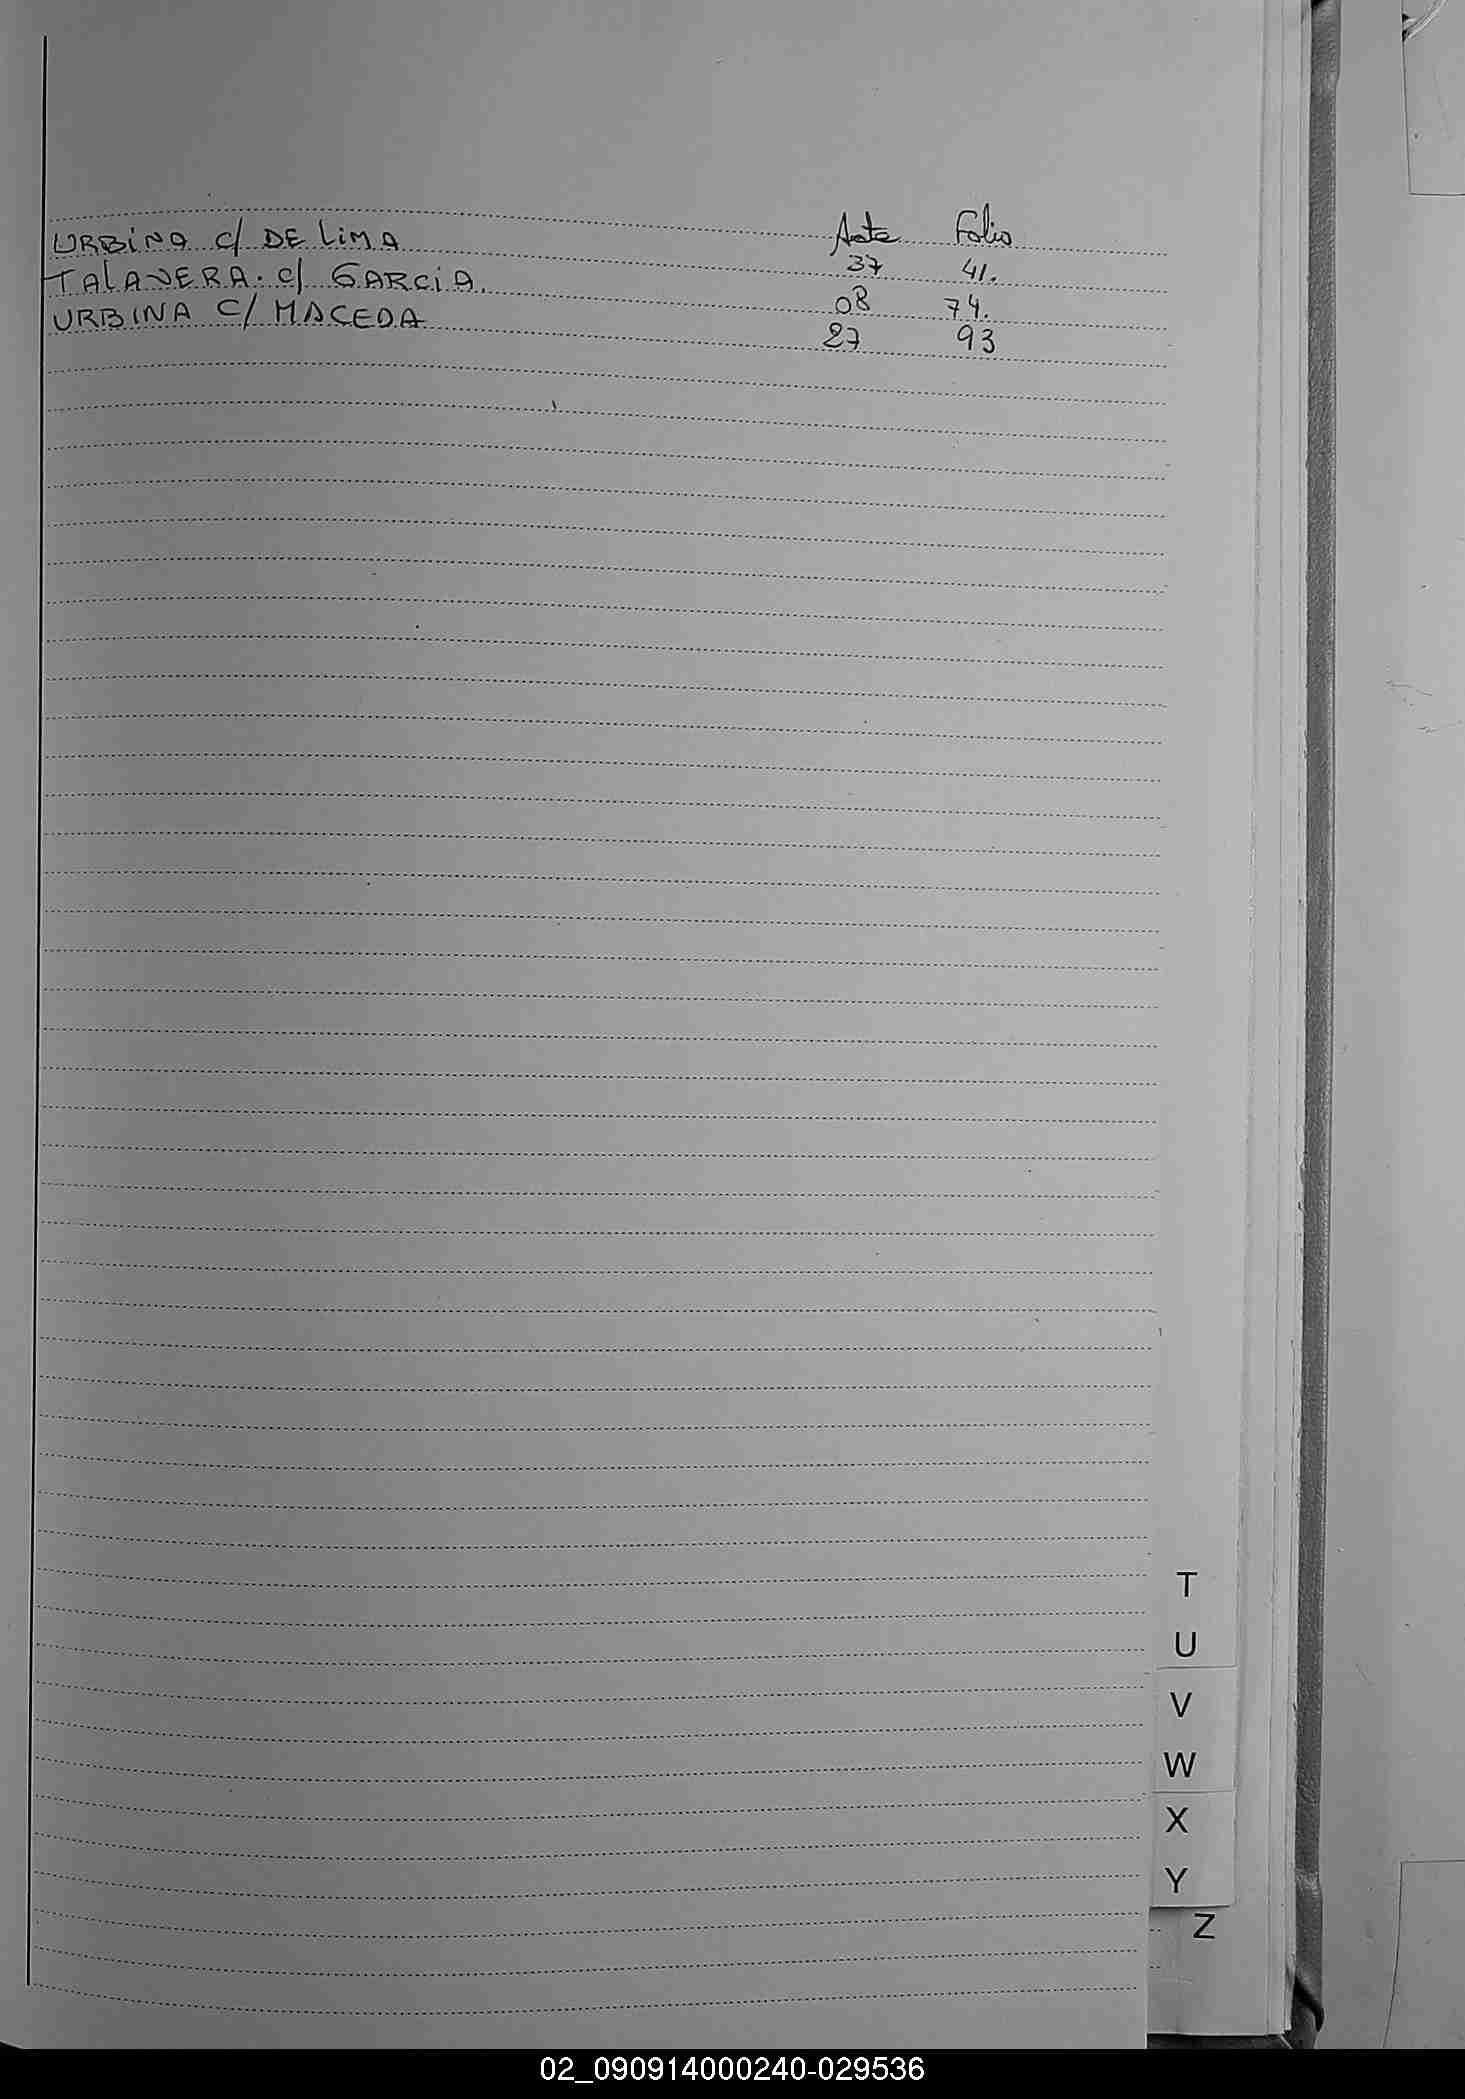 Acta Folio
URBINA C/ DE LIMA 37 41.
TALAVERA. C/ GARCIA. 08 74.
URBINA C/ MACEDA 27 93
T
U
V
W
X
Y
Z
02_090914000240-029536